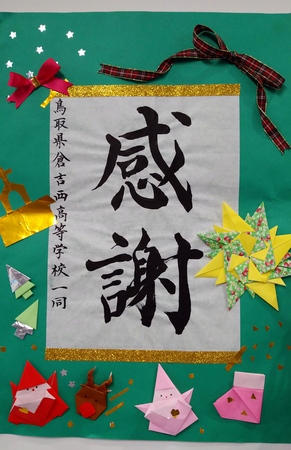 感謝
鳥取県倉吉西高等学校一同